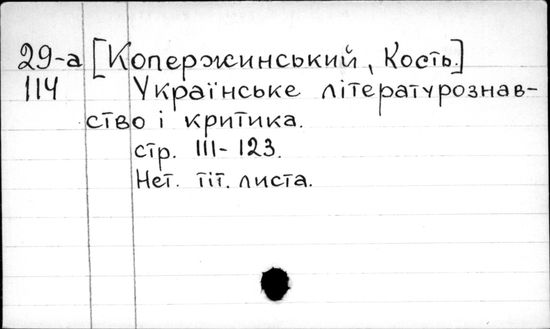 29-а [Копержинський, Кость.]
114 Українське літературознав-
ство і критика.
стр. 111-123.
Нет. тіт. листа.